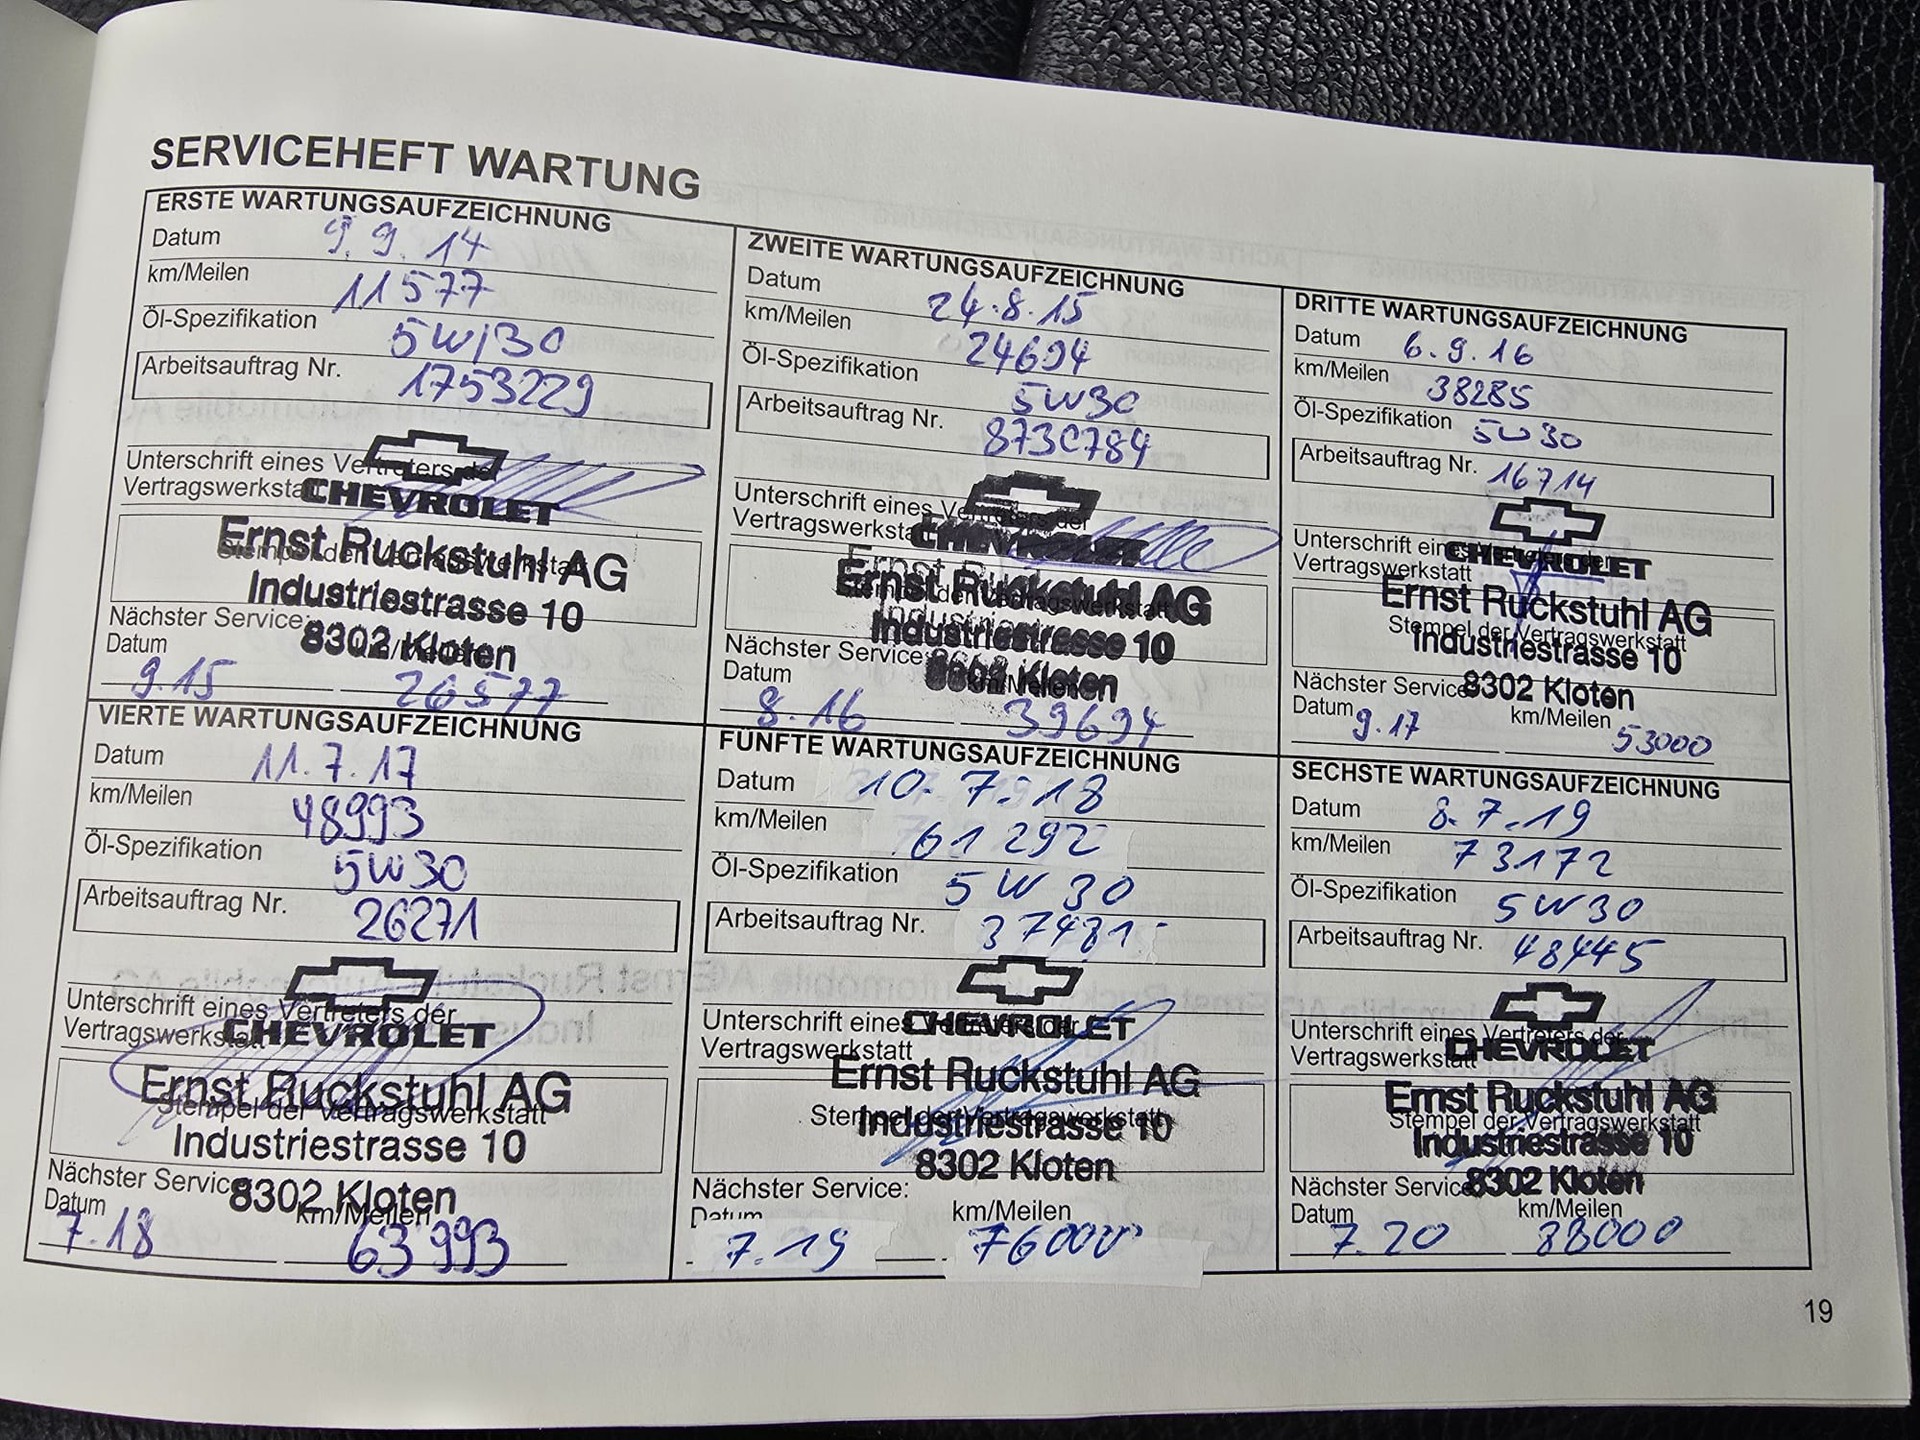 SERVICEHEFT WARTUNG
ERSTE WARTUNGSAUFZEICHNUNG
Datum 9.9.14
km/Meilen 11577
Öl-Spezifikation 5W/30
Arbeitsauftrag Nr. 1753229
CHEVROLET
Unterschrift eines Vertreters der
Vertragswerkstatt
Ernst Ruckstuhl AG
Stempel der Vertragswerkstatt
Industriestrasse 10
8302 Kloten
Nächster Service:
Datum km/Meilen
9.15 26577
ZWEITE WARTUNGSAUFZEICHNUNG
Datum 24.8.15
km/Meilen 24694
Öl-Spezifikation 5W30
Arbeitsauftrag Nr. 8730784
Unterschrift eines Vertreters der
Vertragswerkstatt
CHEVROLET
Ernst Ruckstuhl AG
Stempel der Vertragswerkstatt
Industriestrasse 10
8302 Kloten
Nächster Service:
Datum km/Meilen
8.16 39694
DRITTE WARTUNGSAUFZEICHNUNG
Datum 6.9.16
km/Meilen 38285
Öl-Spezifikation 5W30
Arbeitsauftrag Nr. 16714
Unterschrift eines Vertreters der
Vertragswerkstatt
CHEVROLET
Ernst Ruckstuhl AG
Stempel der Vertragswerkstatt
Industriestrasse 10
8302 Kloten
Nächster Service:
Datum 9.17 km/Meilen 53000
VIERTE WARTUNGSAUFZEICHNUNG
Datum 11.7.17
km/Meilen 48993
Öl-Spezifikation 5W30
Arbeitsauftrag Nr. 26271
Unterschrift eines Vertreters der
Vertragswerkstatt
CHEVROLET
Ernst Ruckstuhl AG
Stempel der Vertragswerkstatt
Industriestrasse 10
8302 Kloten
Nächster Service:
Datum km/Meilen
7.18 63'993
FÜNFTE WARTUNGSAUFZEICHNUNG
Datum 10.7.18
km/Meilen 61292
Öl-Spezifikation 5W30
Arbeitsauftrag Nr. 37431
Unterschrift eines Vertreters der
Vertragswerkstatt
CHEVROLET
Ernst Ruckstuhl AG
Stempel der Vertragswerkstatt
Industriestrasse 10
8302 Kloten
Nächster Service:
Datum km/Meilen
7.19 76000
SECHSTE WARTUNGSAUFZEICHNUNG
Datum 8.7.19
km/Meilen 73172
Öl-Spezifikation 5W30
Arbeitsauftrag Nr. 48445
Unterschrift eines Vertreters der
Vertragswerkstatt
CHEVROLET
Ernst Ruckstuhl AG
Stempel der Vertragswerkstatt
Industriestrasse 10
8302 Kloten
Nächster Service:
Datum km/Meilen
7.20 88000
19